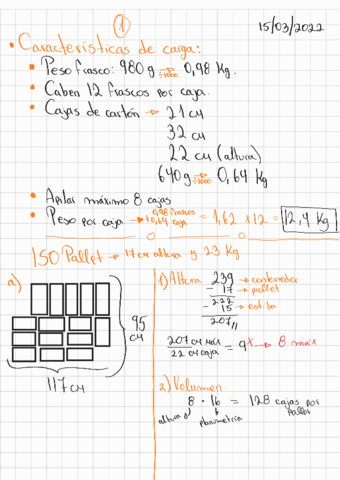 ①
15/03/2022
• Características de carga:
• Peso frasco: 980 g ÷1000 0,98 Kg.
• Caben 12 frascos por caja.
• Cajas de cartón → 21 cm
32 cm
22 cm (altura)
640 g ÷1000 0,64 Kg
• Apilar máximo 8 cajas
• Peso por caja → 0,98 frascos + 0,64 caja = 1,62 × 12 = 12,4 Kg
ISO Pallet → 17 cm altura y 23 Kg
a)
95 cm
117 cm
1) Altura 239 → contenedor
- 17 → pallet
222
- 15 → estiba
207 //
207 cm máx / 22 cm caja = 9 × → 8 máx
2) Volumen.
8 · 16 = 128 cajas por pallet
altura planimetría